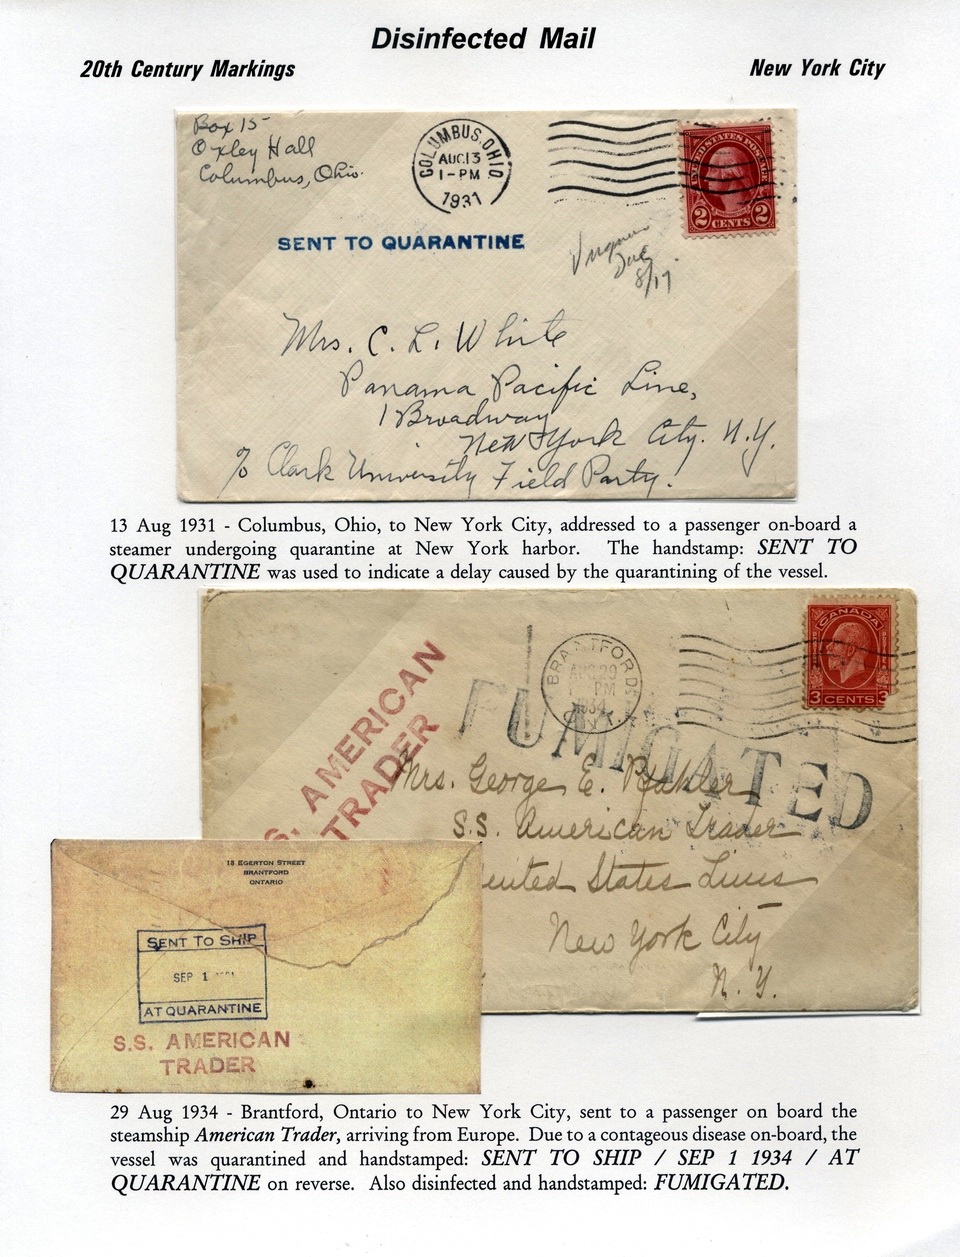 Disinfected Mail
20th Century Markings
New York City
Box 15
Oxley Hall
Columbus, Ohio.
COLUMBUS, OHIO
AUG 13
1-PM
1931
UNITED STATES POSTAGE
2 CENTS 2
SENT TO QUARANTINE
Due
8/17.
Mrs. C. L. White
Panama Pacific Line,
1 Broadway
New York City. N.Y.
℅ Clark University Field Party.
13 Aug 1931 - Columbus, Ohio, to New York City, addressed to a passenger on-board a
steamer undergoing quarantine at New York harbor. The handstamp: SENT TO
QUARANTINE was used to indicate a delay caused by the quarantining of the vessel.
BRANTFORD
AUG 29
PM
1934
CANADA
3 CENTS 3
FUMIGATED
S. AMERICAN
TRADER
Mrs. George E.
S.S. American Trader
United States Lines
New York City
N.Y.
18 EGERTON STREET
BRANTFORD
ONTARIO
SENT TO SHIP
SEP 1
AT QUARANTINE
S.S. AMERICAN
TRADER
29 Aug 1934 - Brantford, Ontario to New York City, sent to a passenger on board the
steamship American Trader, arriving from Europe. Due to a contageous disease on-board, the
vessel was quarantined and handstamped: SENT TO SHIP / SEP 1 1934 / AT
QUARANTINE on reverse. Also disinfected and handstamped: FUMIGATED.